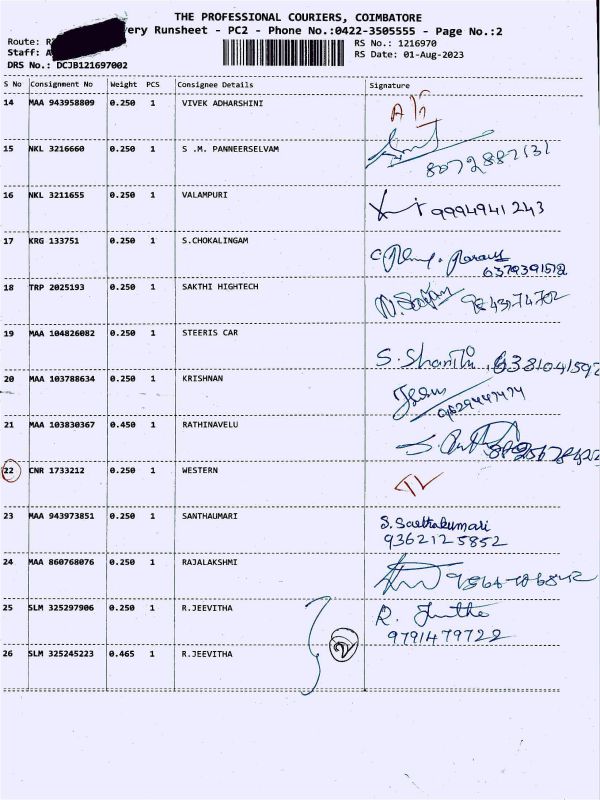 THE PROFESSIONAL COURIERS, COIMBATORE
very Runsheet - PC2 - Phone No.:0422-3505555 - Page No.:2
Route: R
RS No.: 1216970
Staff: A
RS Date: 01-Aug-2023
DRS No.: DCJB121697002
S No Consignment No Weight PCS Consignee Details Signature
14 MAA 943958809 0.250 1 VIVEK ADHARSHINI
15 NKL 3216660 0.250 1 S .M. PANNEERSELVAM
8072887131
16 NKL 3211655 0.250 1 VALAMPURI 9994941243
17 KRG 133751 0.250 1 S.CHOKALINGAM
6379391572
18 TRP 2025193 0.250 1 SAKTHI HIGHTECH
19 MAA 104826082 0.250 1 STEERIS CAR
S. Shanthi 6381041592
20 MAA 103788634 0.250 1 KRISHNAN
21 MAA 103830367 0.450 1 RATHINAVELU
22 CNR 1733212 0.250 1 WESTERN
23 MAA 943973851 0.250 1 SANTHAUMARI
S. Santhakumari
9362125852
24 MAA 860768076 0.250 1 RAJALAKSHMI
25 SLM 325297906 0.250 1 R.JEEVITHA
R.
9791479722
26 SLM 325245223 0.465 1 R.JEEVITHA 2